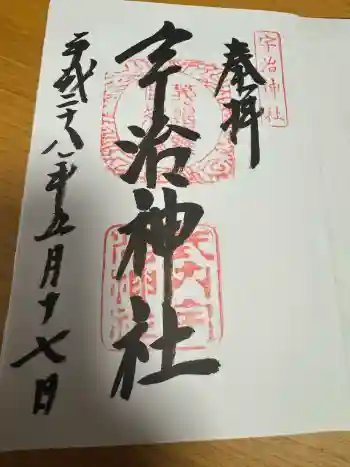 宇治神社
奉拝
宇治神社
平成二十八年五月十七日